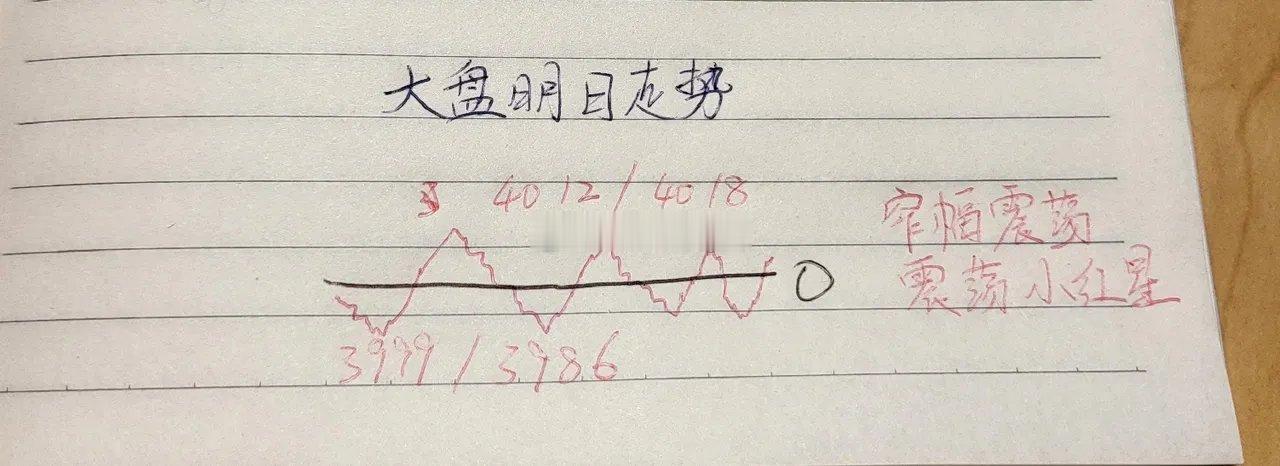 大盘明日走势
4012/4018
窄幅震荡
震荡小红星
0
3999/3986